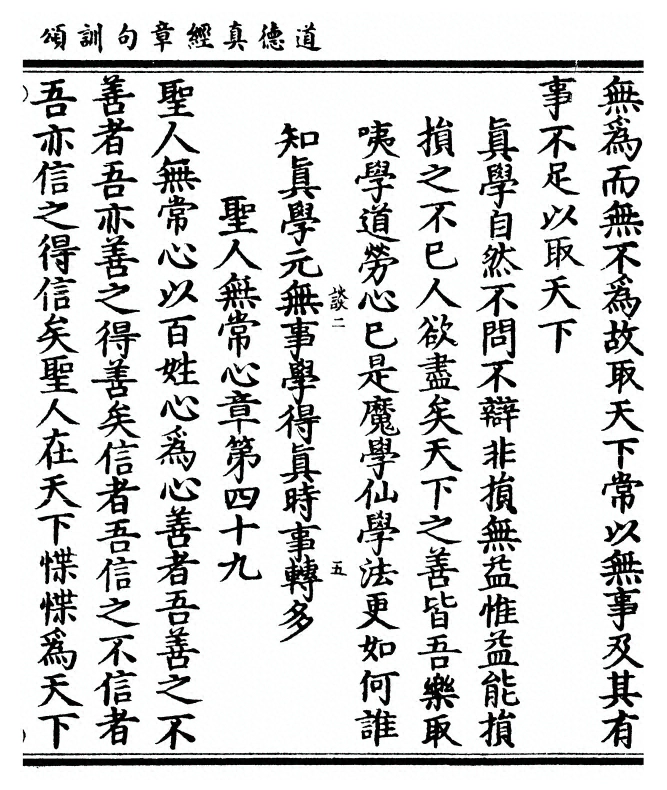 道德真經章句訓頌
無爲而無不爲故取天下常以無事及其有
事不足以取天下
眞學自然不問不辯非損無益惟益能損
損之不巳人欲盡矣天下之善皆吾樂取
咦學道勞心巳是魔學仙學法更如何誰
談二
五
知眞學元無事學得眞時事轉多
聖人無常心章第四十九
聖人無常心以百姓心爲心善者吾善之不
善者吾亦善之得善矣信者吾信之不信者
吾亦信之得信矣聖人在天下惵惵爲天下